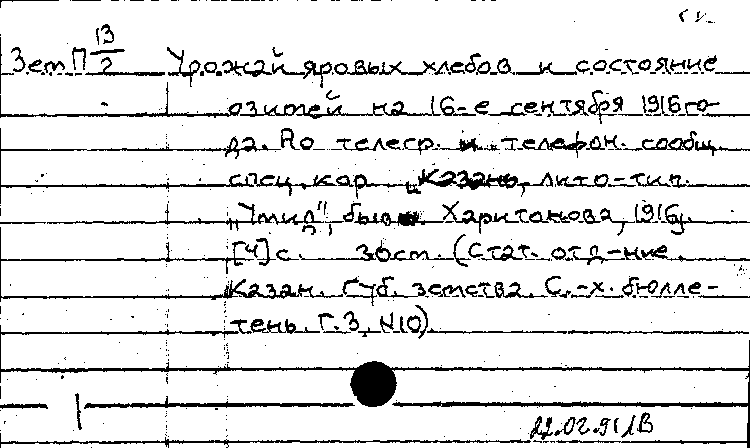 Зем П 13/2 Урожай яровых хлебов и состояние
озимей на 16-е сентября 1916 го-
да. По телегр. и телефон. сообщ.
спец. кор. Казань, лито-тип.
„Умид", бывш. Харитонова, 1916г.
[4] с. 30см. (Стат. отд-ние
Казан. Губ. земства. С.-х. бюлле-
тень. Г. 3, N10).
1